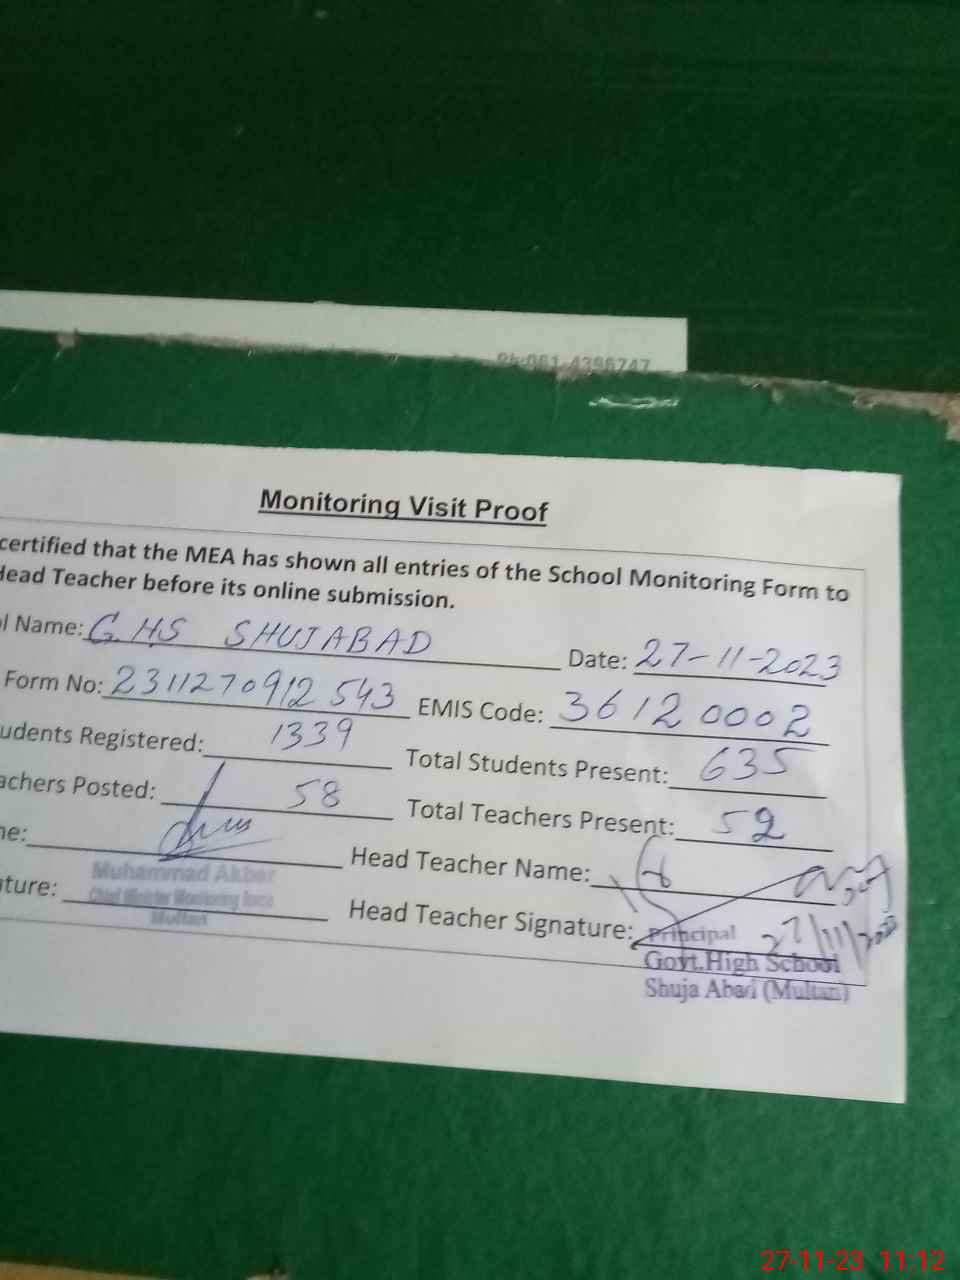 Ph:061-4396747
Monitoring Visit Proof
certified that the MEA has shown all entries of the School Monitoring Form to
Head Teacher before its online submission.
l Name: G.HS SHUJABAD Date: 27-11-2023
Form No: 2311270912543 EMIS Code: 36120002
udents Registered: 1339 Total Students Present: 635
achers Posted: 58 Total Teachers Present: 52
ne: Head Teacher Name:
Muhammad Akbar
ture: Head Teacher Signature:
Chief Minister Monitoring force
Multan
Principal 27/11/2023
Govt.High School
Shuja Abad (Multan)
27-11-23 11:12